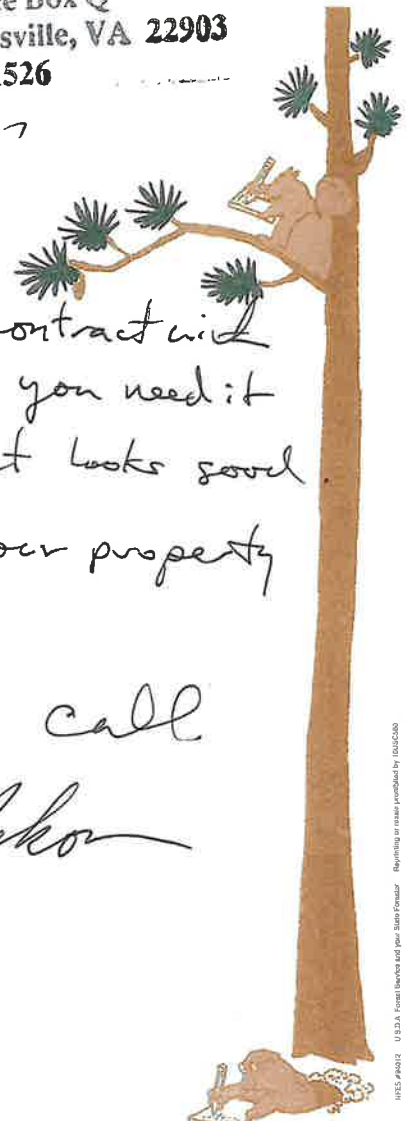 Box Q
sville, VA 22903
526
7
ontract with
you need it
t looks good
our property
call
kon
NFES #94012 U.S.D.A. Forest Service and your State Forester Reprinting or resale prohibited by